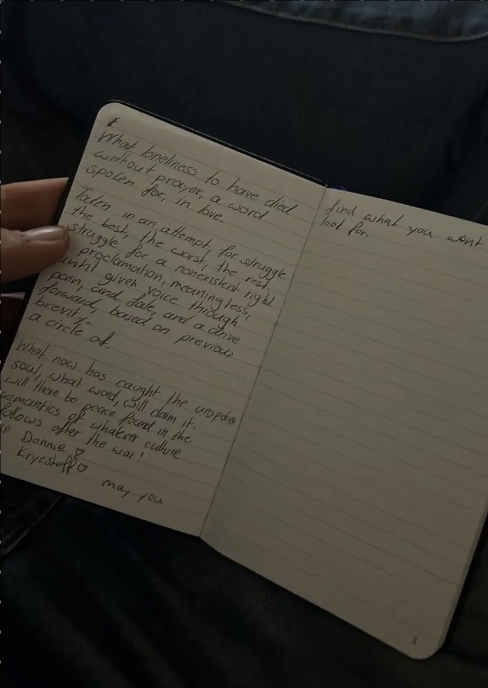 What loneliness to have died
without prayer, a word
spoken for, in love.
Taken in an attempt for struggle
the best, the worst, the rest
struggle for a nonexistent right
proclamation, meaningless,
until given voice through
pain, and fate, and a drive
forward, based on previous
brevity-
a circle of.
What now has caught the unspoken
soul, what word, will claim it.
will there be peace found in the
semantics of whatever culture
follows after the war!
Donnie ♡
Krycstoff ♡
may you
find what you won't
look for.